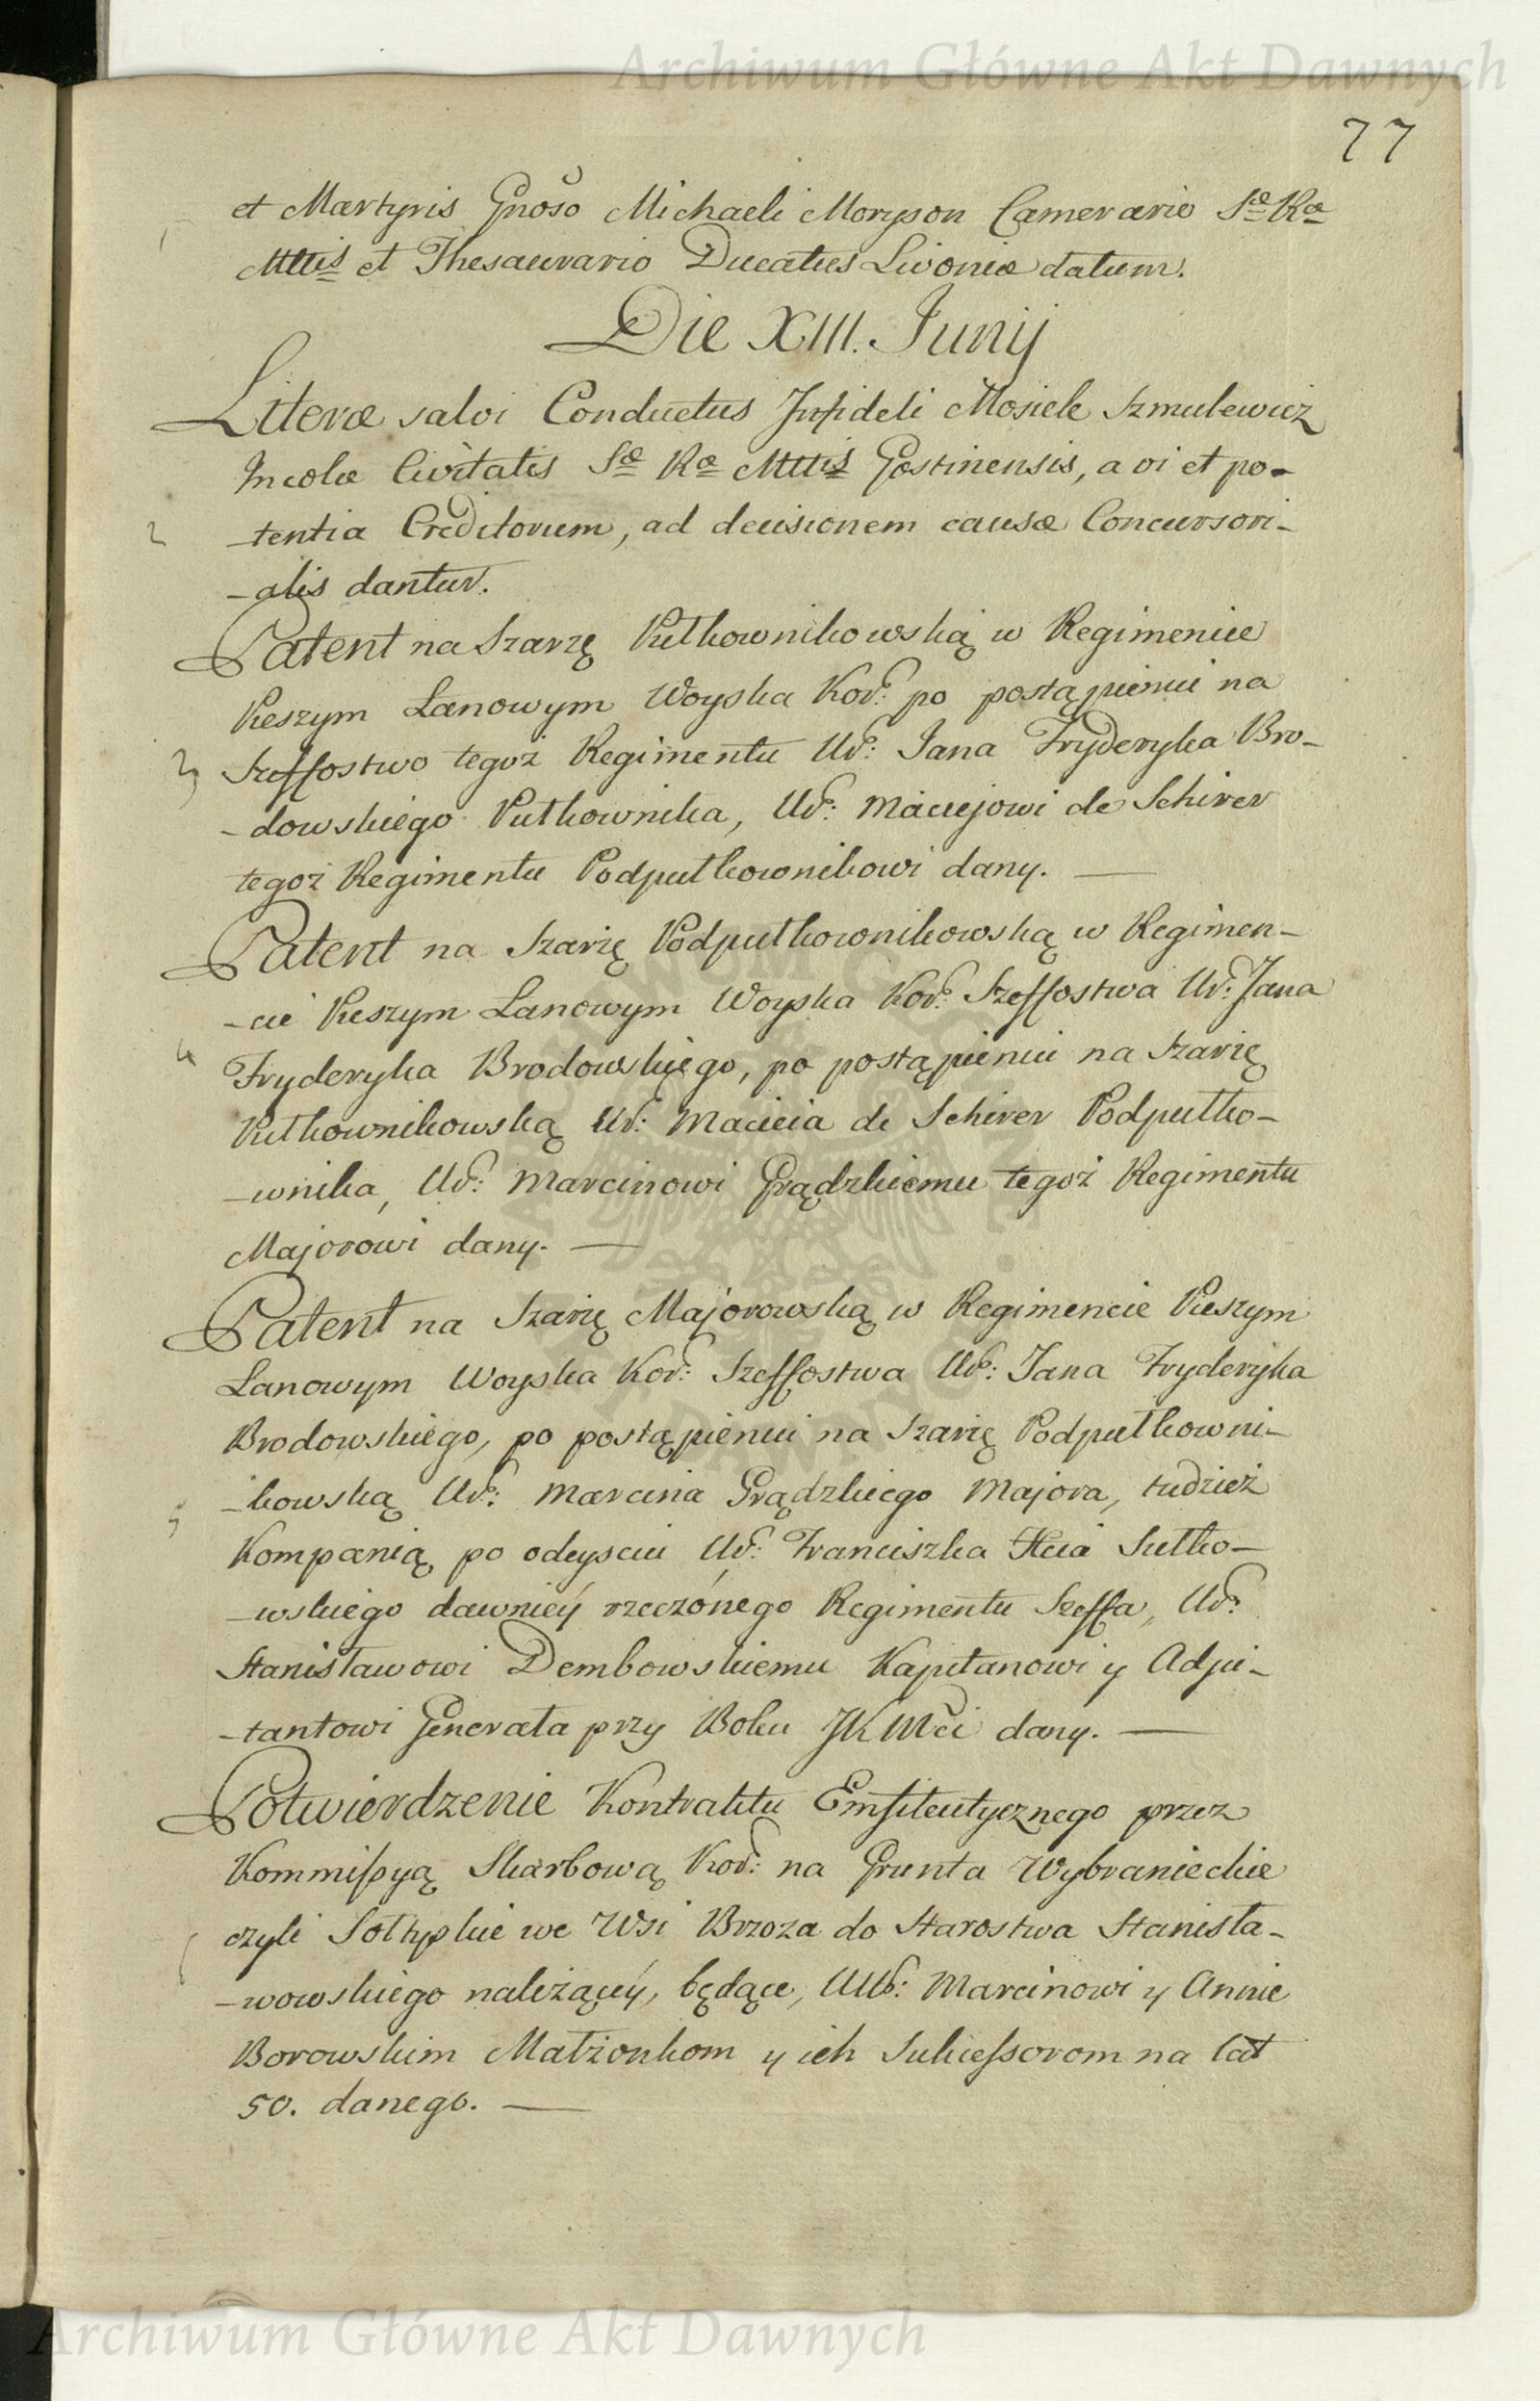 Archiwum Główne Akt Dawnych
77
et Martyris Gnoso Michaeli Moryson Camerario Sæ Ræ
Mttis et Thesaurario Ducatus Livoniæ datum.
Die XIII. Junij
Literæ salvi Conductus Infideli Mosiek Szmulewicz
Incolæ Civitatis Sæ Ræ Mttis Gostinensis, a vi et po-
2 -tentia Creditorum, ad decisionem causæ Concursori-
-alis dantur.
Patent na Szarżę Pułkownikowską w Regimencie
Pieszym Łanowym Woyska Kor: po postąpieniu na
3 Szeffostwo tegoż Regimentu Ur: Jana Fryderyka Bro-
-dowskiego Pułkownika, Ur: Maciejowi de Schirer
tegoż Regimentu Podpułkownikowi dany. —
Patent na Szarżę Podpułkownikowską w Regimen-
-cie Pieszym Łanowym Woyska Kor: Szeffostwa Ur: Jana
4 Fryderyka Brodowskiego, po postąpieniu na Szarżę
Pułkownikowską Ur: Macieia de Schirer Podpułko-
-wnika, Ur: Marcinowi Grądzkiemu tegoż Regimentu
Majorowi dany. —
Patent na Szarżę Majorowską w Regimencie Pieszym
Łanowym Woyska Kor: Szeffostwa Ur: Jana Fryderyka
Brodowskiego, po postąpieniu na Szarżę Podpułkowni-
5 -kowską Ur: Marcina Grądzkiego Majora, tudzież
Kompanią po odeysciu Ur: Franciszka Xcia Sułko-
-wskiego dawniéy rzeczonego Regimentu Szeffa, Ur:
Stanisławowi Dembowskiemu Kapitanowi y Adju-
-tantowi Generała przy Boku JKMci dany. —
Potwierdzenie Kontraktu Emfiteutycznego przez
Kommissyą Skarbową Kor: na Grunta Wybranieckie
czyli Sołtyskie we Wsi Brzoza do Starostwa Stanisła-
-wowskiego należącéy, będące, UUr: Marcinowi y Annie
Borowskim Małżonkom y ich Sukcessorom na lat
50. danego. —
Archiwum Główne Akt Dawnych